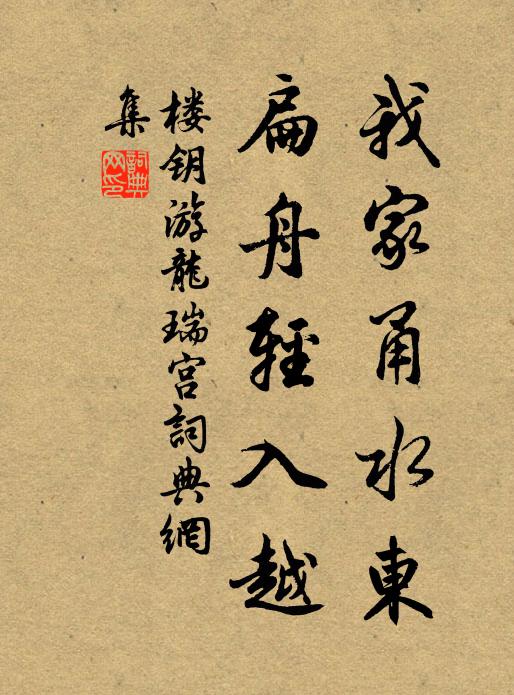 我家甬水東
扁舟輕入越
楼钥游龍瑞宫詞典網
集
詞典网印